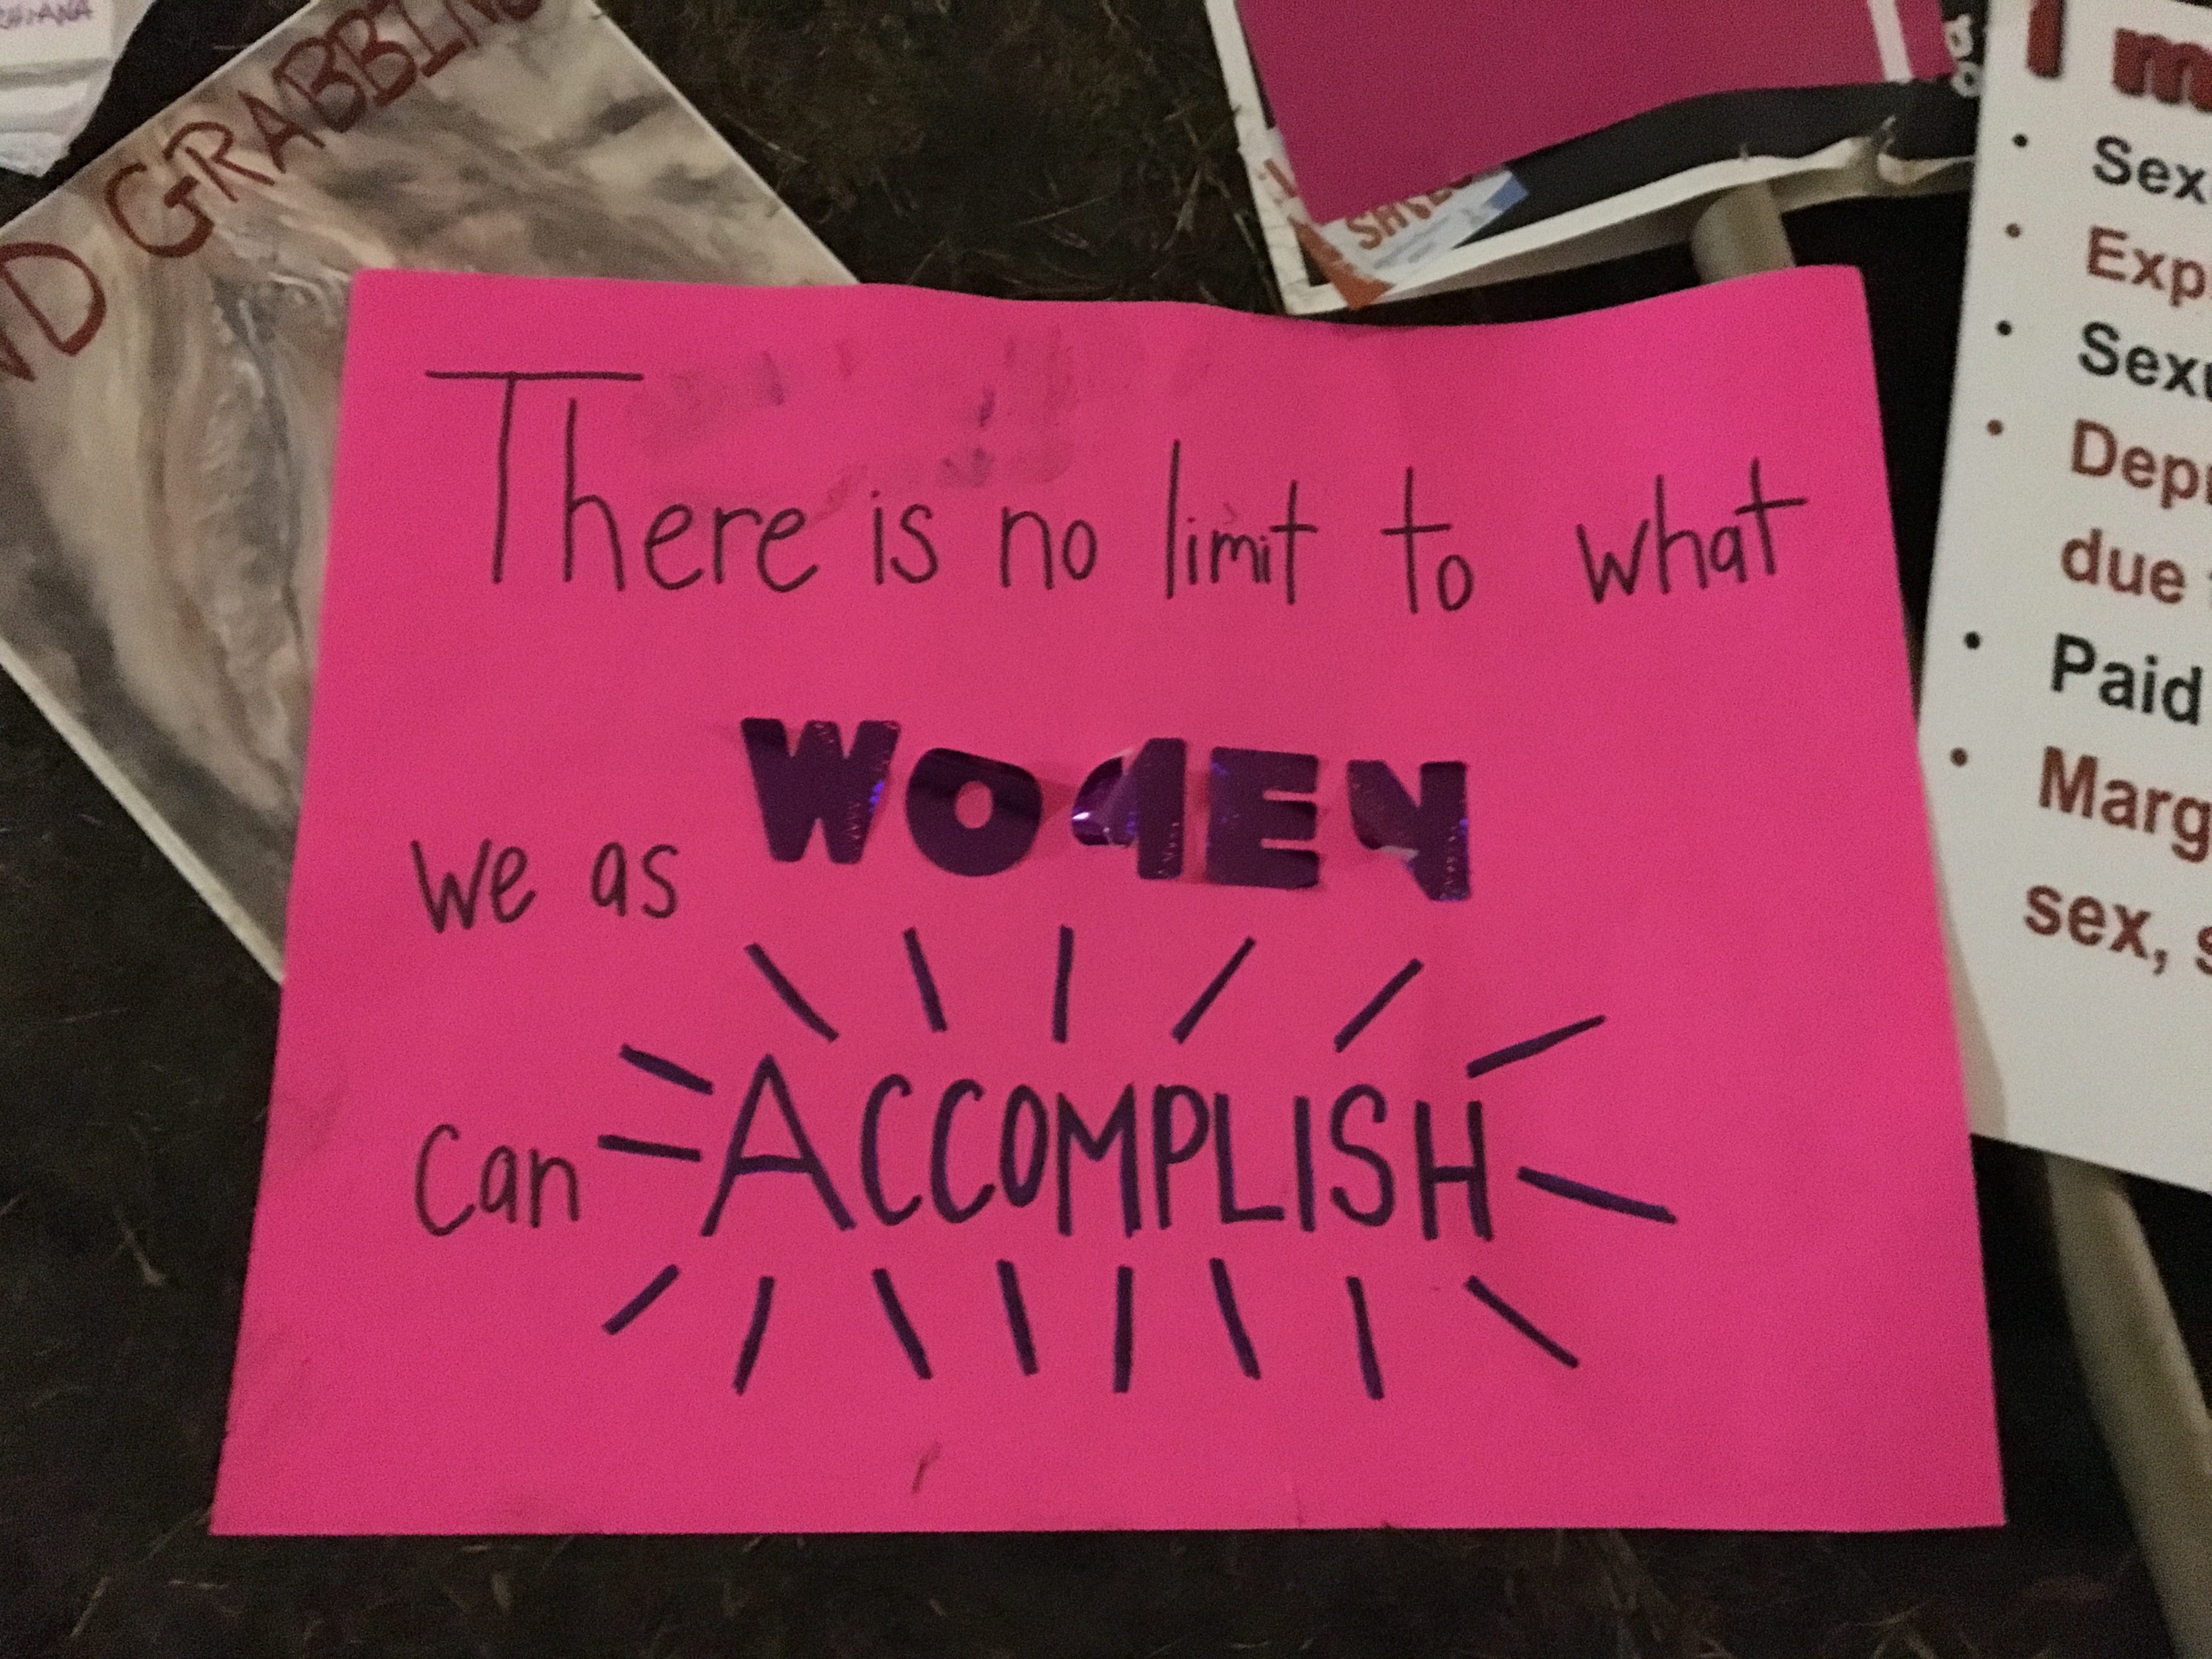 GRABBING
There is no limit to what
we as WOMEN
Can ACCOMPLISH
I
Sex
Exp
Sexu
Dep
due
Paid
Marg
sex,